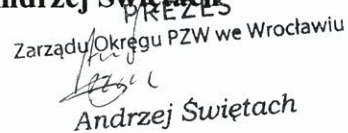 Andrzej Świętach
PREZES
Zarządu Okręgu PZW we Wrocławiu
Andrzej Świętach